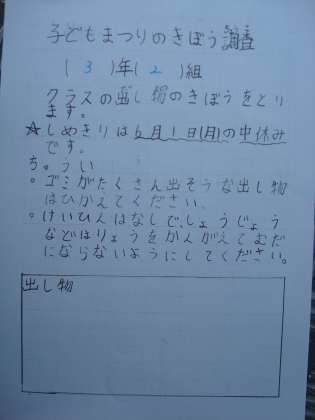 子どもまつりのきぼう調査
(3)年(2)組
クラスの出し物のきぼうをとり
ます。
☆しめきりは6月1日(月)の中休み
です。
ちゅうい
。ゴミがたくさん出そうな出し物
はひかえてください、
。けいひんはなしで、しょうじょう
などはりょうをかんがえてむだ
にならないようにしてください。
出し物